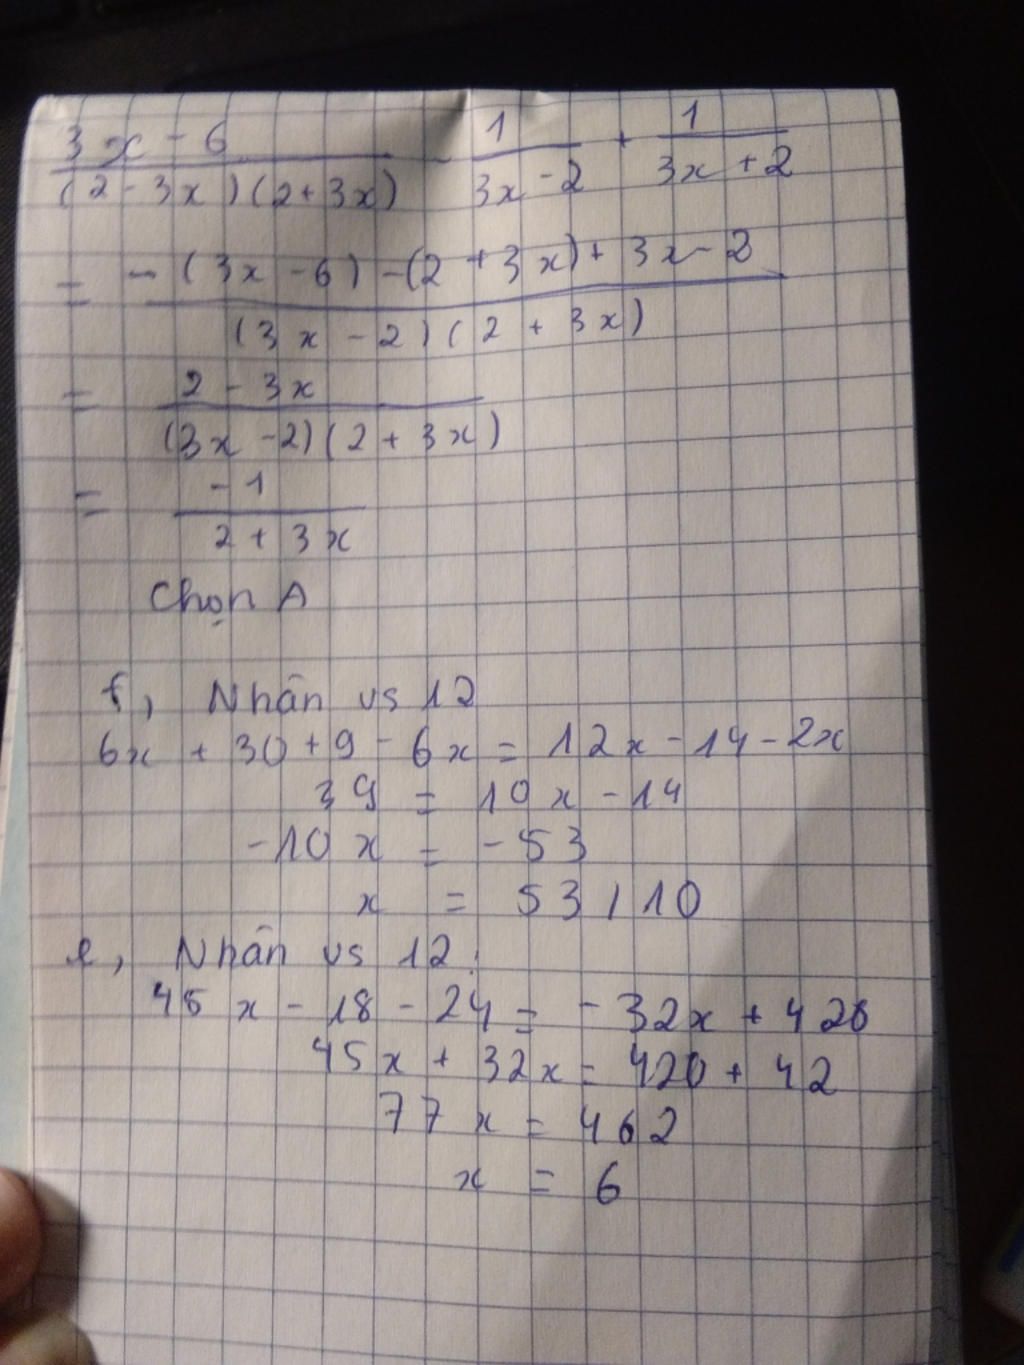 3x - 6 / (2 - 3x)(2 + 3x) - 1 / 3x - 2 + 1 / 3x + 2
= - (3x - 6) - (2 + 3x) + 3x - 2 / (3x - 2)(2 + 3x)
= 2 - 3x / (3x - 2)(2 + 3x)
= -1 / 2 + 3x
Chọn A
f, Nhân vs 12
6x + 30 + 9 - 6x = 12x - 14 - 2x
39 = 10x - 14
-10x = -53
x = 53/10
e, Nhân vs 12:
45x - 18 - 24 = -32x + 420
45x + 32x = 420 + 42
77x = 462
x = 6